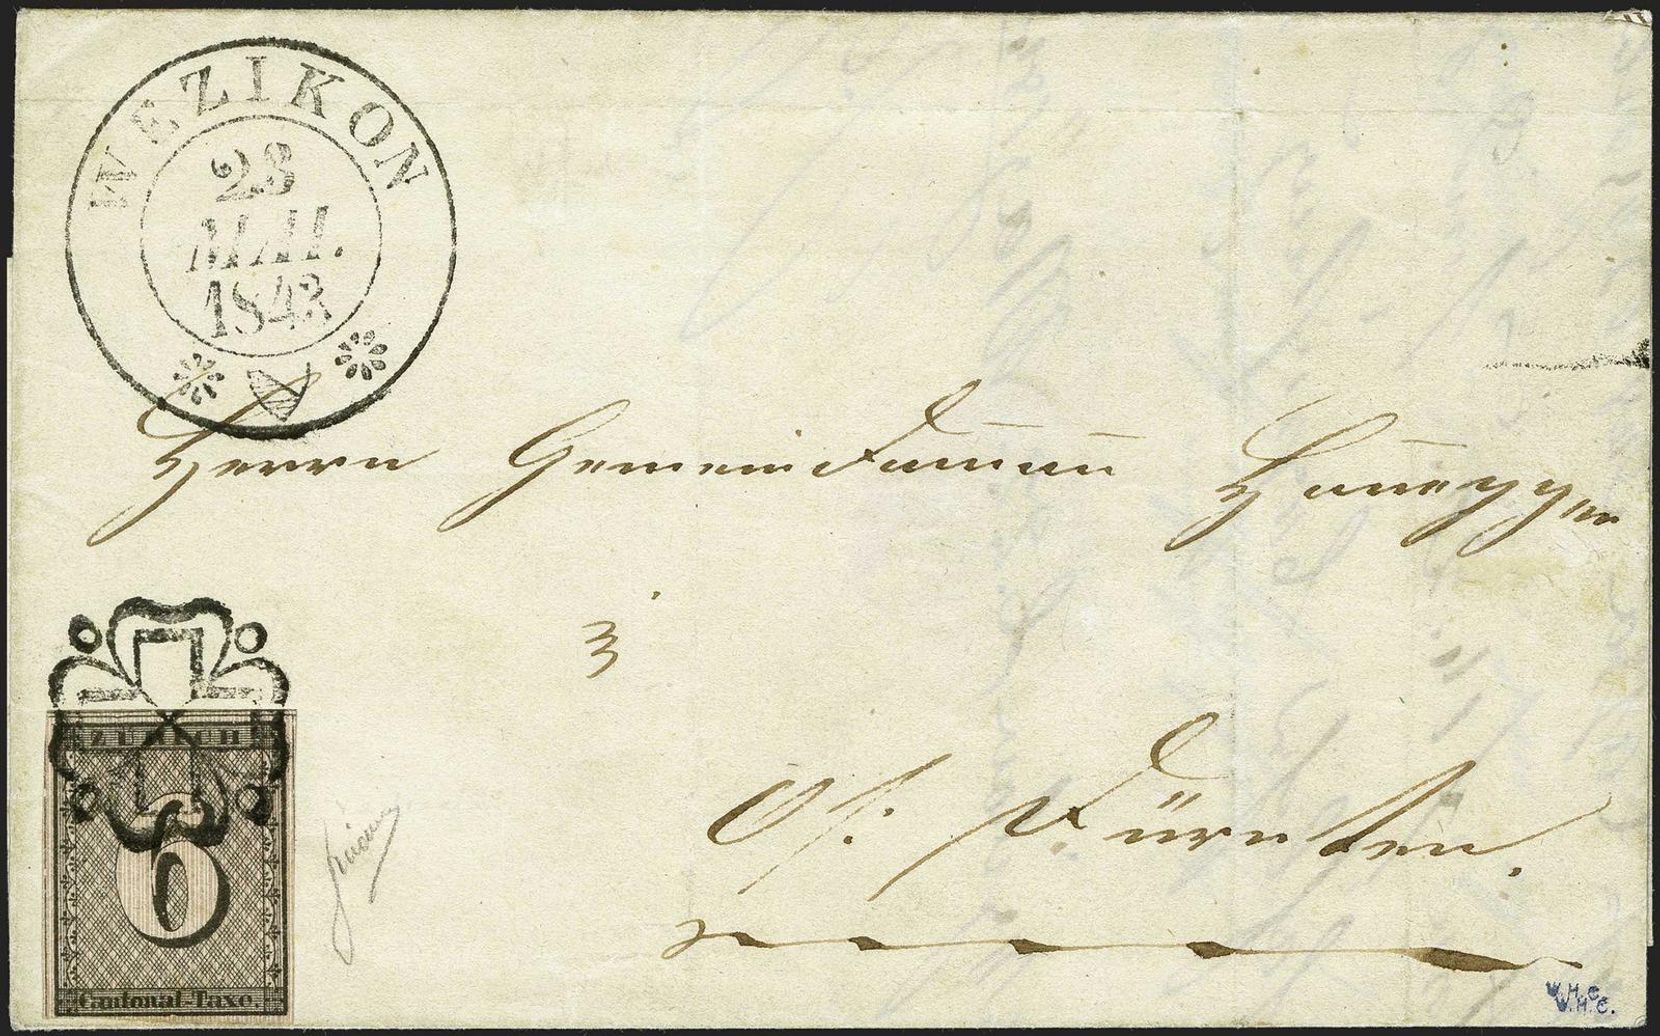 WEZIKON
23
MAI.
1843
Herrn Gemeindamann Honegger
3
Dürnten.
ZÜRICH
6
Cantonal-Taxe.
W.H.C.
W.H.C.